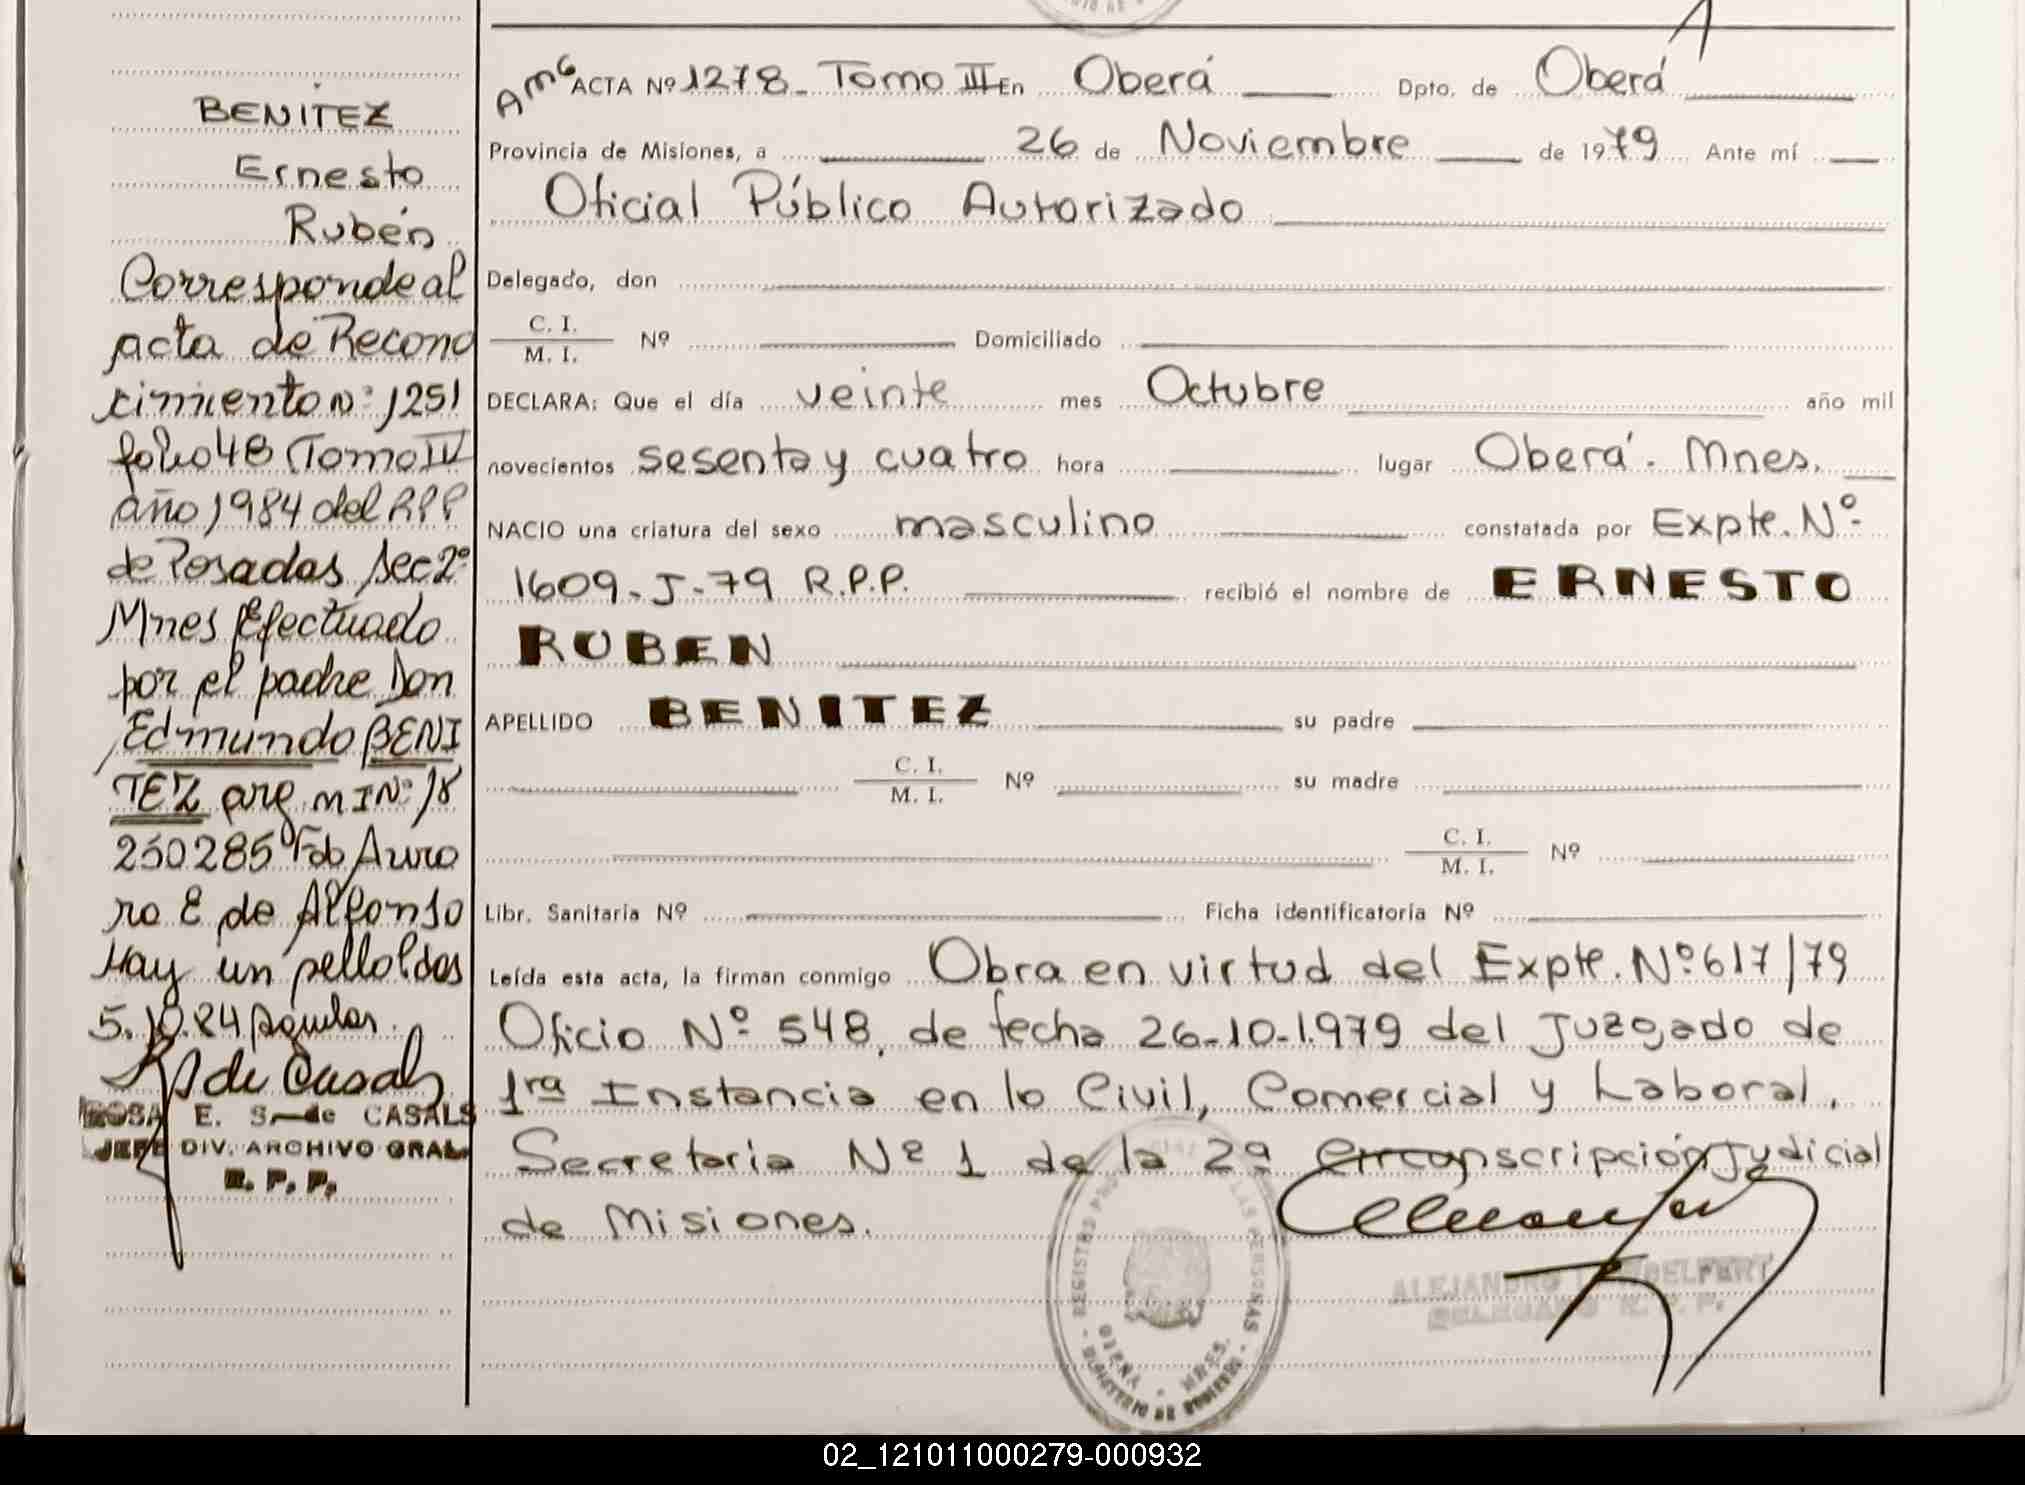 BENITEZ
Ernesto
Rubén
Corresponde al
acta de Recono
cimiento Nº 1251
folio 48 Tomo IV
año 1984 del RPP
de Posadas Sec 2º
Mnes Efectuado
por el padre Don
Edmundo BENI
TEZ arg MI Nº 18
250285 Fdo Auro
ra E de Alfonso
Hay un sello Ldos
5.10.84
ROSA E. S. de CASALS
JEFE DIV. ARCHIVO GRAL.
R. P. P.
AMG ACTA Nº 1278 - Tomo III En Oberá Dpto. de Oberá
Provincia de Misiones, a 26 de Noviembre de 1979 Ante mí
Oficial Público Autorizado
Delegado, don
C. I.
M. I. Nº Domiciliado
DECLARA: Que el día veinte mes Octubre año mil
novecientos sesenta y cuatro hora lugar Oberá. Mnes.
NACIO una criatura del sexo masculino constatada por Expte. Nº
1609-J-79 R.P.P. recibió el nombre de ERNESTO
RUBEN
APELLIDO BENITEZ su padre
C. I.
M. I. Nº su madre
C. I.
M. I. Nº
Libr. Sanitaria Nº Ficha identificatoria Nº
Leída esta acta, la firman conmigo Obra en virtud del Expte. Nº 617/79
Oficio Nº 548, de fecha 26-10-1.979 del Juzgado de
1ra Instancia en lo Civil, Comercial y Laboral,
Secretaria Nº 1 de la 2ª Circunscripción Judicial
de Misiones.
02_121011000279-000932